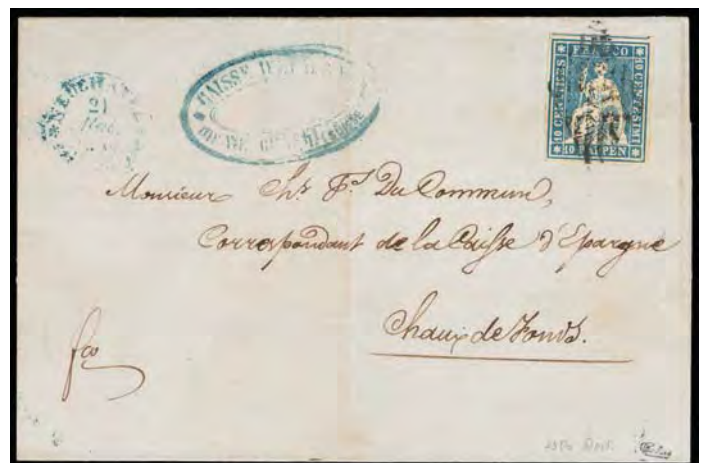 NEUCHATEL
21
CAISSE D'EPARGNE
DE NEUCHATEL
FRANCO
10 CENTIMES
10 CENTESIMI
10 RAPPEN
Monsieur Chs. Fs. Du Commun,
Correspondant de la Caisse d'Epargne
Chaux de Fonds.
fco